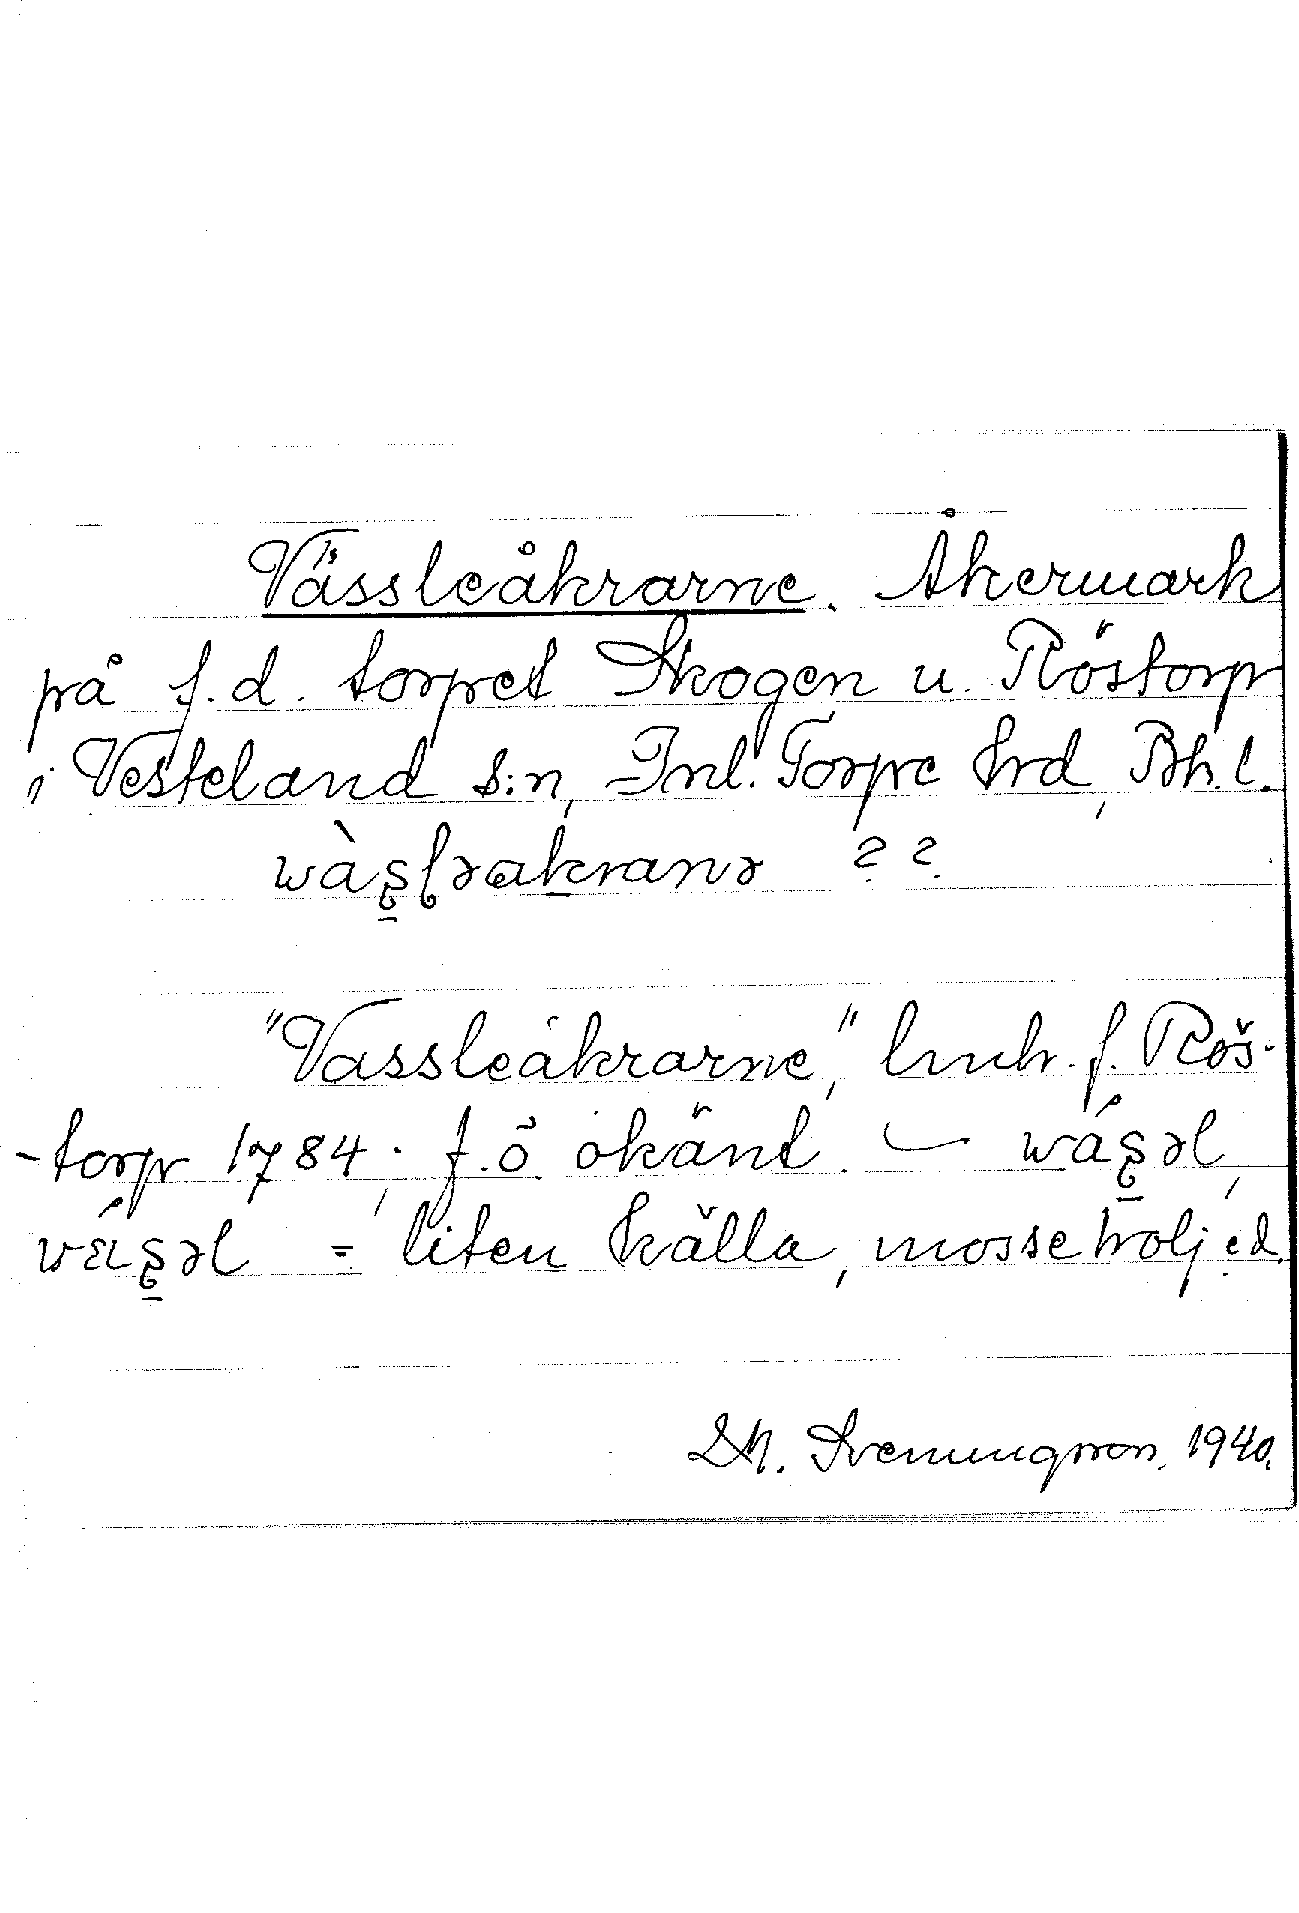 Vässleåkrarne. Åkermark
på f.d. torpet Skogen u. Röstorp
i Vesteland s:n, Inl. Torpe hrd, Bh.l.
wàʂləakranə ? ?
"Vassleåkrarne," lmh. f. Rös-
-torp 1784; f.ö okänt. — wáʂəl,
vǽʂəl = liten källa, mossehölj e.d.
D.H. Svenungsson, 1940.